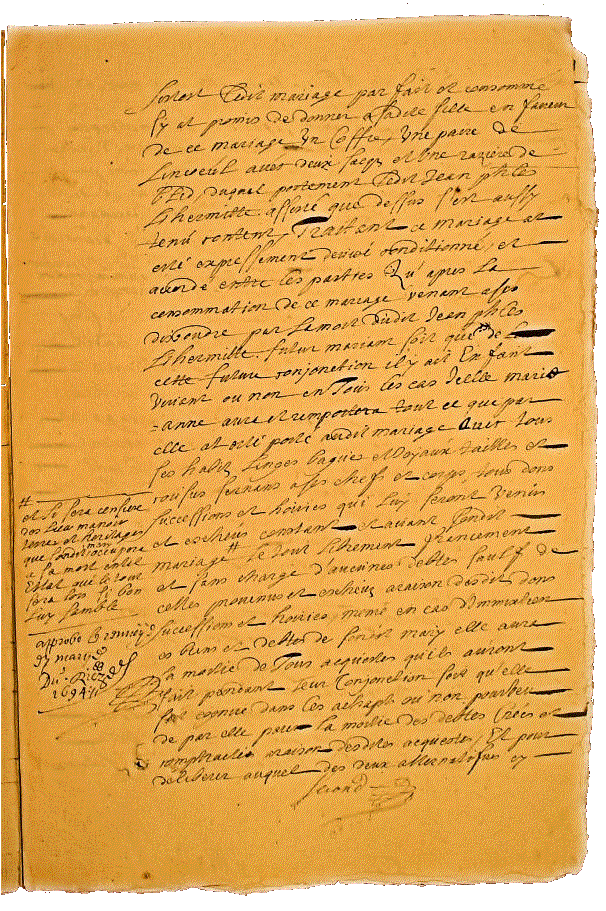 ledit mariage par fait et consommé
luy at promis de donner a ladite fille en faveur
de ce mariage Un Coffre, Une paire de
Linceuil avec deux et Une de
duquel portement ledit Jean phles
Lhermitte assisté que dessus s'est aussy
tenu content, Traittant ce mariage at
esté expressement devisé conditionné, et
acordé entre les parties Qu'apres la
consommation de ce mariage venant a se
dissoudre par la mort dudit Jean phles
Lhermitte futur mariant soit que de
cette future conjonction il y ait Enfant
vivant ou non en Tous les cas Icelle marie
=anne aura et remportera tout ce que par
elle at esté porté audit mariage avec tous
ses habits Linges bagues et Joyaux tailles et
servans a ses chef et corps, tous dons
successions et hoiries qui Luy seront Venues
et escheues constant et avant ledit
mariage # Le tout Librement franchement
et sans charge d'aucunes debtes sauf de
celles provenues et escheues a raison desdits dons
successions et hoiries, meme en cas d'Immixtion
es biens et debtes de sondit mary elle aura
la moitie de Tous acquestes qu'ils auront
fait pendant leur Conjonction soit qu'elle
soit connue dans les achapts ou non pourveu
de par elle paier la moitie des debtes Créés et
contractées a raison desdites acquestes, Et pour
deliberer auquel des deux alternatifs cy
second
#
et Se sera
des lieu manoir
terres et heritages
que sondit mary occupera
a sa mort en tel
Estat que le tout
sera lors si bon
Luy semble
approbé le renvoy
dy mars
1694